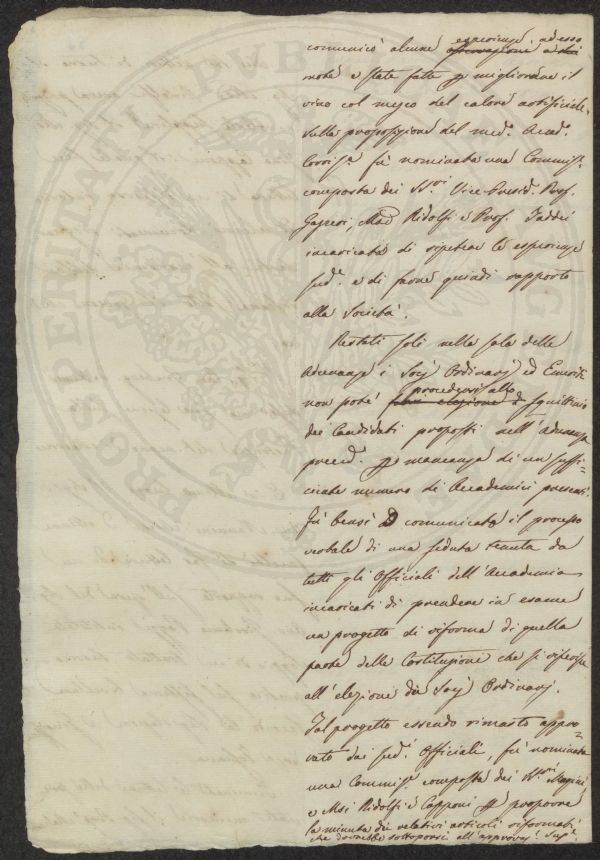 esperienze adesso
comunicò alcune
note e state fatte p migliorare il
vino col mezzo del calore artificiale.
Sulla proposizione del med.º Acad.º
Corrisp.e fù nominata una Commiss.e
composta dei SS.ri Vice-Presid.e Prof.
Gazzeri, Mse Ridolfi e Prof. Taddei
incaricata di ripetere le esperienze
sud.e e di farne quindi rapporto
alla Società.
Restati soli nella sala delle
Adunanze i Socj Ordinarj ed Emeriti
non poté procedersi allo Squittinio
dei Candidati proposti nell'adunanza
preced.e p mancanza di un suffi-
ciente numero di Accademici presenti.
Fù bensì comunicato il processo
verbale di una seduta tenuta da
tutti gli Officiali dell'Accademia
incaricati di prendere in esame
un progetto di riforma di quella
parte della Costituzione che si riferisce
all'elezione dei Socj Ordinarj.
Tal progetto essendo rimasto appro-
vato dai sud.i Officiali, fù nominata
una Commiss.e composta dei SS.ri
e Msi Ridolfi e Capponi p proporre
la minuta dei relativi articoli riformati
che dovrebbe sottoporsi all'approvaz.e Sup.e